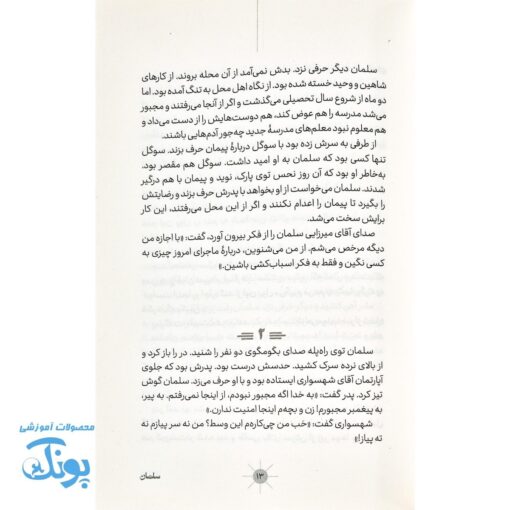 سلمان دیگر حرفی نزد. بدش نمی‌آمد از آن محله بروند. از کارهای
شاهین و وحید خسته شده بود. از نگاه اهل محل به تنگ آمده بود. اما
دو ماه از شروع سال تحصیلی می‌گذشت و اگر از آنجا می‌رفتند و مجبور
می‌شد مدرسه را هم عوض کند، هم دوست‌هایش را از دست می‌داد و
هم معلوم نبود معلم‌های مدرسهٔ جدید چه‌جور آدم‌هایی باشند.
از طرفی به سرش زده بود با سوگل دربارهٔ پیمان حرف بزند. سوگل
تنها کسی بود که سلمان به او امید داشت. سوگل هم مقصر بود.
به‌خاطر او بود که آن روز نحس توی پارک، نوید و پیمان با هم درگیر
شدند. سلمان می‌خواست از او بخواهد با پدرش حرف بزند و رضایتش
را بگیرد تا پیمان را اعدام نکنند و اگر از این محل می‌رفتند، این کار
برایش سخت می‌شد.
صدای آقای میرزایی سلمان را از فکر بیرون آورد، گفت: «با اجازه من
دیگه مرخص می‌شم. از من می‌شنوین، دربارهٔ ماجرای امروز چیزی به
کسی نگین و فقط به فکر اسباب‌کشی باشین.»
۲
سلمان توی راه‌پله صدای بگومگوی دو نفر را شنید. در را باز کرد و
از بالای نرده سرک کشید. حدسش درست بود. پدرش بود که جلوی
آپارتمان آقای شهسواری ایستاده بود و با او حرف می‌زد. سلمان گوش
تیز کرد. پدر گفت: «به خدا اگه مجبور نبودم، از اینجا نمی‌رفتم. به پیر،
به پیغمبر مجبورم! زن و بچه‌م اینجا امنیت ندارن.»
شهسواری گفت: «خب من چی‌کاره‌م این وسط؟ من نه سر پیازم نه
ته پیاز!»
۱۳
سلمان
محصولات آموزشی
پونک